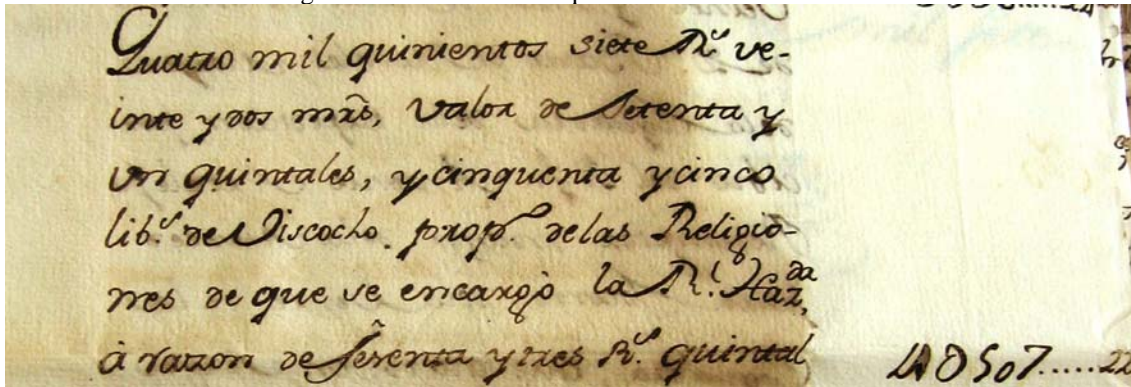 Quatro mil quinientos siete R.ˢ ve-
inte y dos mr̃s, valor de Setenta y
un quintales, y cinquenta y cinco
lib.ˢ de Viscocho prop.ˢ delas Religio-
nes de que se encargò la R.ˡ Haz.ᵈᵃ
à razon de sesenta y tres R.ˢ quintal 4D507.....22